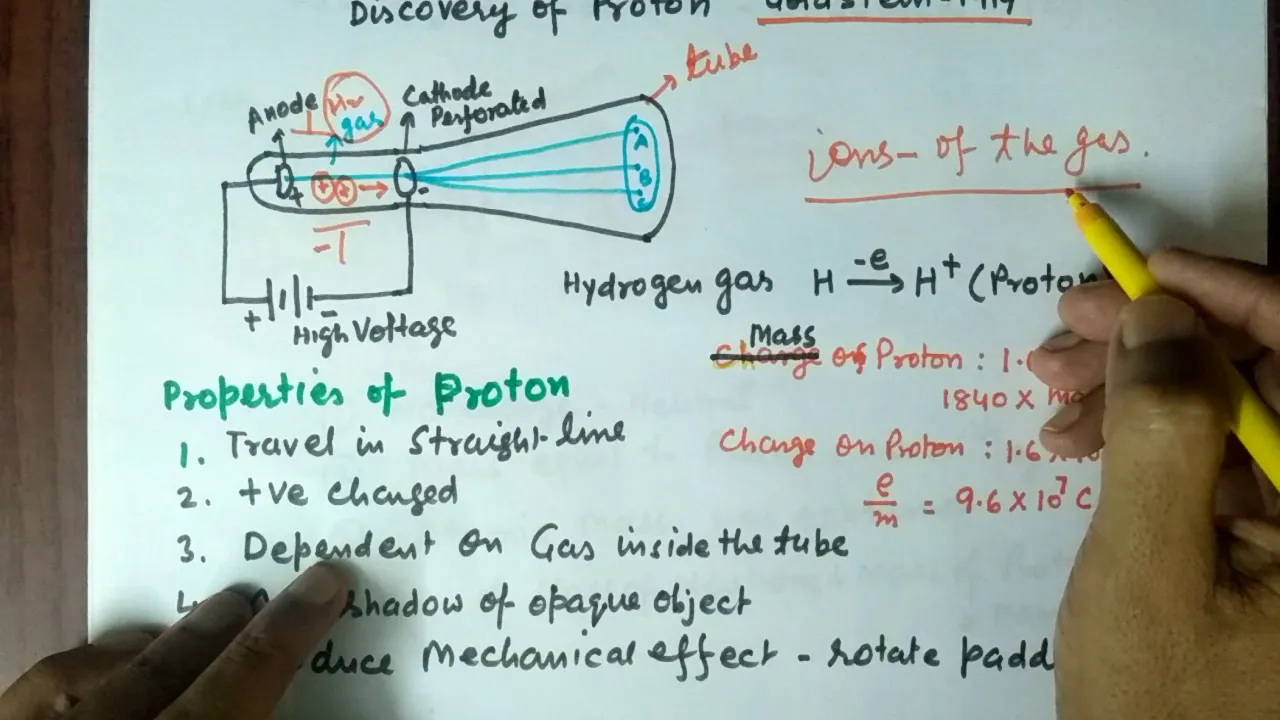 Discovery of Proton
tube
Anode
gas
Cathode
Perforated
A
B
C
+ + + → -
-1
+ -
High Voltage
ions- of the gas.
Hydrogen gas H -e→ H+ (Proton
Mass
Charge of Proton : 1.
1840 x
Charge on Proton : 1.6 x
e/m = 9.6 x 10⁷ C
Properties of Proton
1. Travel in Straight-line
2. +ve charged
3. Dependent on Gas inside the tube
shadow of opaque object
duce Mechanical effect - rotate padd